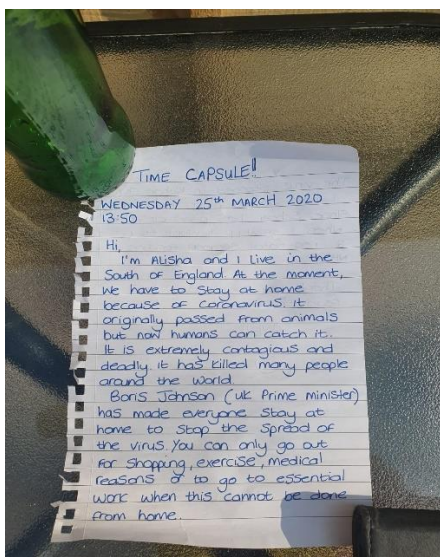 TIME CAPSULE!!
WEDNESDAY 25th MARCH 2020
13:50
Hi,
I'm Alisha and I live in the
South of England. At the moment,
we have to stay at home
because of coronavirus. It
originally passed from animals
but now humans can catch it.
It is extremely contagious and
deadly. it has killed many people
around the world.
Boris Johnson (uk Prime minister)
has made everyone stay at
home to stop the spread of
the virus You can only go out
for shopping, exercise, medical
reasons or to go to essential
work when this cannot be done
from home.